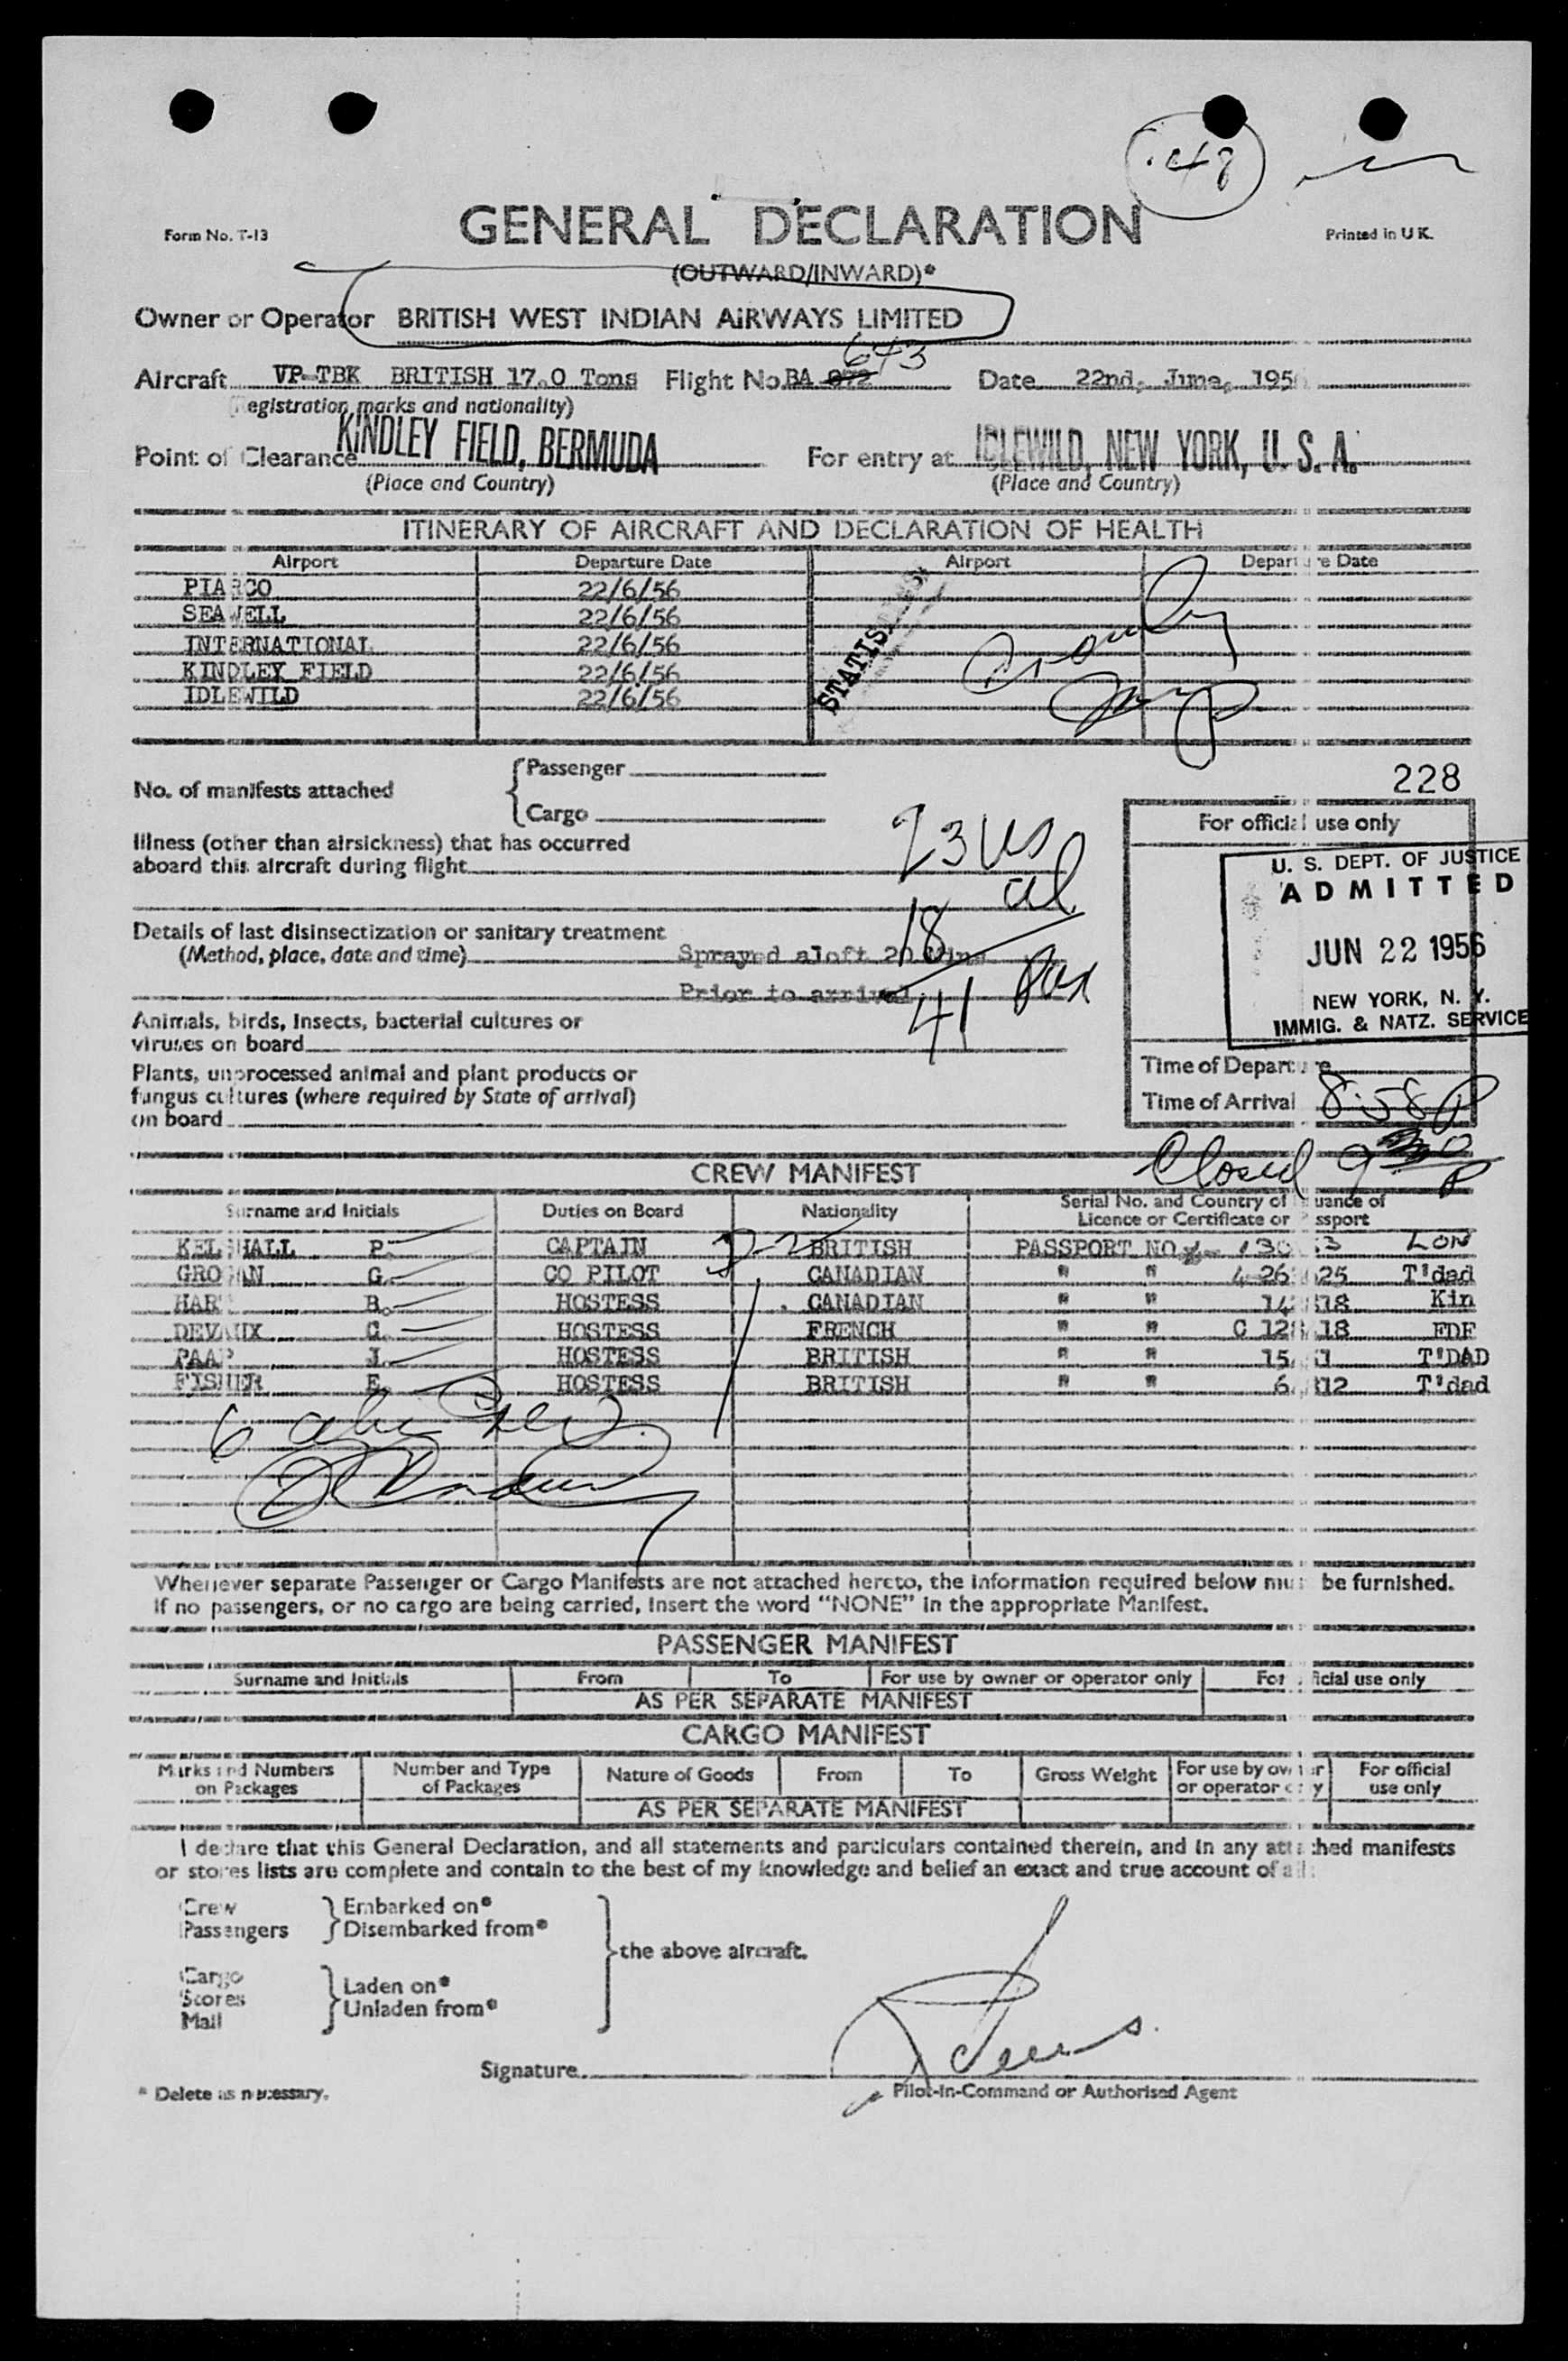 48
Form No. T-13
GENERAL DECLARATION
Printed in U K.
(OUTWARD/INWARD)*
Owner or Operator BRITISH WEST INDIAN AIRWAYS LIMITED
643
Aircraft VP-TBK BRITISH 17.0 Tons Flight No. BA 072 Date 22nd, June, 195
(Registration marks and nationality)
Point of Clearance KINDLEY FIELD, BERMUDA For entry at IDLEWILD, NEW YORK, U. S. A.
(Place and Country) (Place and Country)
ITINERARY OF AIRCRAFT AND DECLARATION OF HEALTH
Airport Departure Date Airport Departure Date
PIARCO 22/6/56
SEAWELL 22/6/56
INTERNATIONAL 22/6/56
KINDLEY FIELD 22/6/56
IDLEWILD 22/6/56
No. of manifests attached
Passenger
Cargo
228
For official use only
Illness (other than airsickness) that has occurred
aboard this aircraft during flight
23 US
18 al
41 Pax
U. S. DEPT. OF JUSTICE
ADMITTED
JUN 22 1956
NEW YORK, N. Y.
IMMIG. & NATZ. SERVICE
Details of last disinsectization or sanitary treatment
(Method, place, date and time) Sprayed aloft 20 Mins
Prior to arrival
Animals, birds, insects, bacterial cultures or
viruses on board
Plants, unprocessed animal and plant products or
fungus cultures (where required by State of arrival)
on board
Time of Departure
Time of Arrival 8:58 P
Closed 9 30 P
CREW MANIFEST
Surname and Initials Duties on Board Nationality Serial No. and Country of Issuance of
Licence or Certificate or Passport
KELSHALL P. CAPTAIN BRITISH PASSPORT NO. LON
GRO AN G. CO PILOT CANADIAN " " T'dad
HAR R. HOSTESS CANADIAN " " Kin
DEVAUX G. HOSTESS FRENCH " " FDF
PAAP J. HOSTESS BRITISH " " T'DAD
FISHER E. HOSTESS BRITISH " " T'dad
6 alien Crew
Whenever separate Passenger or Cargo Manifests are not attached hereto, the information required below must be furnished.
If no passengers, or no cargo are being carried, insert the word "NONE" in the appropriate Manifest.
PASSENGER MANIFEST
Surname and Initials From To For use by owner or operator only For official use only
AS PER SEPARATE MANIFEST
CARGO MANIFEST
Marks and Numbers on Packages Number and Type of Packages Nature of Goods From To Gross Weight For use by owner or operator only For official use only
AS PER SEPARATE MANIFEST
I declare that this General Declaration, and all statements and particulars contained therein, and in any attached manifests
or stores lists are complete and contain to the best of my knowledge and belief an exact and true account of all:
Crew
Passengers
Embarked on*
Disembarked from*
the above aircraft.
Cargo
Stores
Mail
Laden on*
Unladen from*
Signature
* Delete as necessary.
Pilot-in-Command or Authorised Agent